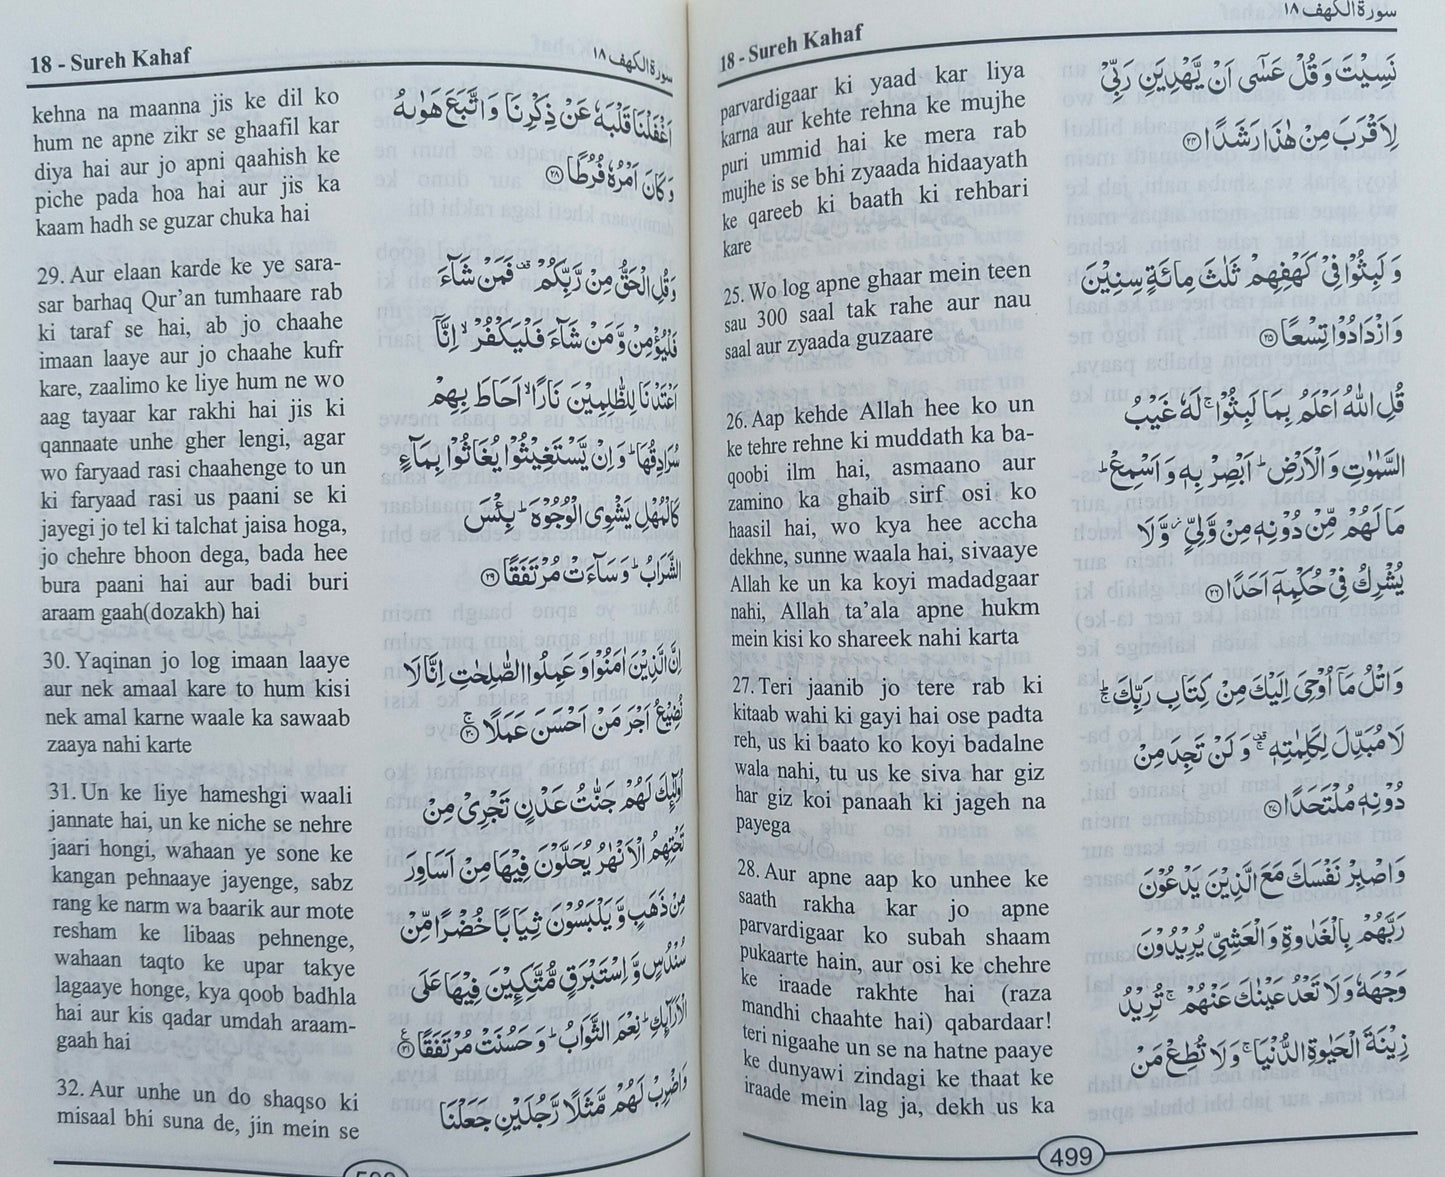 18 - Sureh Kahaf
سورة الكهف ١٨
نَسِيْتَ وَقُلْ عَسٰٓى اَنْ يَّهْدِيَنِ رَبِّيْ
لِاَقْرَبَ مِنْ هٰذَا رَشَدًا ۝٢٤
وَلَبِثُوْا فِيْ كَهْفِهِمْ ثَلٰثَ مِائَةٍ سِنِيْنَ
وَازْدَادُوْا تِسْعًا ۝٢٥
قُلِ اللّٰهُ اَعْلَمُ بِمَا لَبِثُوْا ۚ لَهٗ غَيْبُ
السَّمٰوٰتِ وَالْاَرْضِ ؕ اَبْصِرْ بِهٖ وَاَسْمِعْ ؕ
مَا لَهُمْ مِّنْ دُوْنِهٖ مِنْ وَّلِيٍّ ۫ وَّلَا
يُشْرِكُ فِيْ حُكْمِهٖٓ اَحَدًا ۝٢٦
وَاتْلُ مَآ اُوْحِيَ اِلَيْكَ مِنْ كِتَابِ رَبِّكَ ۚ
لَا مُبَدِّلَ لِكَلِمٰتِهٖ ۫ وَلَنْ تَجِدَ مِنْ
دُوْنِهٖ مُلْتَحَدًا ۝٢٧
وَاصْبِرْ نَفْسَكَ مَعَ الَّذِيْنَ يَدْعُوْنَ
رَبَّهُمْ بِالْغَدٰوةِ وَالْعَشِيِّ يُرِيْدُوْنَ
وَجْهَهٗ وَلَا تَعْدُ عَيْنٰكَ عَنْهُمْ ۚ تُرِيْدُ
زِيْنَةَ الْحَيٰوةِ الدُّنْيَا ۚ وَلَا تُطِعْ مَنْ
parvardigaar ki yaad kar liya
karna aur kehte rehna ke mujhe
puri ummid hai ke mera rab
mujhe is se bhi zyaada hidaayath
ke qareeb ki baath ki rehbari
kare
25. Wo log apne ghaar mein teen
sau 300 saal tak rahe aur nau
saal aur zyaada guzaare
26. Aap kehde Allah hee ko un
ke tehre rehne ki muddath ka ba-
qoobi ilm hai, asmaano aur
zamino ka ghaib sirf osi ko
haasil hai, wo kya hee accha
dekhne, sunne waala hai, sivaaye
Allah ke un ka koyi madadgaar
nahi, Allah ta'ala apne hukm
mein kisi ko shareek nahi karta
27. Teri jaanib jo tere rab ki
kitaab wahi ki gayi hai ose padta
reh, us ki baato ko koyi badalne
wala nahi, tu us ke siva har giz
har giz koi panaah ki jageh na
payega
28. Aur apne aap ko unhee ke
saath rakha kar jo apne
parvardigaar ko subah shaam
pukaarte hain, aur osi ke chehre
ke iraade rakhte hai (raza
mandhi chaahte hai) qabardaar!
teri nigaahe un se na hatne paaye
ke dunyawi zindagi ke thaat ke
iraade mein lag ja, dekh us ka
499
18 - Sureh Kahaf
سورة الكهف ١٨
اَغْفَلْنَا قَلْبَهٗ عَنْ ذِكْرِنَا وَاتَّبَعَ هَوٰىهُ
وَكَانَ اَمْرُهٗ فُرُطًا ۝٢٨
وَقُلِ الْحَقُّ مِنْ رَّبِّكُمْ ۫ فَمَنْ شَآءَ
فَلْيُؤْمِنْ وَّمَنْ شَآءَ فَلْيَكْفُرْ ۙ اِنَّآ
اَعْتَدْنَا لِلظّٰلِمِيْنَ نَارًا ۙ اَحَاطَ بِهِمْ
سُرَادِقُهَا ؕ وَاِنْ يَّسْتَغِيْثُوْا يُغَاثُوْا بِمَآءٍ
كَالْمُهْلِ يَشْوِى الْوُجُوْهَ ؕ بِئْسَ
الشَّرَابُ ؕ وَسَآءَتْ مُرْتَفَقًا ۝٢٩
اِنَّ الَّذِيْنَ اٰمَنُوْا وَعَمِلُوا الصّٰلِحٰتِ اِنَّا لَا
نُضِيْعُ اَجْرَ مَنْ اَحْسَنَ عَمَلًا ۝٣٠
اُولٰٓئِكَ لَهُمْ جَنّٰتُ عَدْنٍ تَجْرِيْ مِنْ
تَحْتِهِمُ الْاَنْهٰرُ يُحَلَّوْنَ فِيْهَا مِنْ اَسَاوِرَ
مِنْ ذَهَبٍ وَّيَلْبَسُوْنَ ثِيَابًا خُضْرًا مِّنْ
سُنْدُسٍ وَّاِسْتَبْرَقٍ مُّتَّكِـِٕيْنَ فِيْهَا عَلَى
الْاَرَآئِكِ ؕ نِعْمَ الثَّوَابُ ؕ وَحَسُنَتْ مُرْتَفَقًا ۝٣١
وَاضْرِبْ لَهُمْ مَّثَلًا رَّجُلَيْنِ جَعَلْنَا
kehna na maanna jis ke dil ko
hum ne apne zikr se ghaafil kar
diya hai aur jo apni qaahish ke
piche pada hoa hai aur jis ka
kaam hadh se guzar chuka hai
29. Aur elaan karde ke ye sara-
sar barhaq Qur'an tumhaare rab
ki taraf se hai, ab jo chaahe
imaan laaye aur jo chaahe kufr
kare, zaalimo ke liye hum ne wo
aag tayaar kar rakhi hai jis ki
qannaate unhe gher lengi, agar
wo faryaad rasi chaahenge to un
ki faryaad rasi us paani se ki
jayegi jo tel ki talchat jaisa hoga,
jo chehre bhoon dega, bada hee
bura paani hai aur badi buri
araam gaah(dozakh) hai
30. Yaqinan jo log imaan laaye
aur nek amaal kare to hum kisi
nek amal karne waale ka sawaab
zaaya nahi karte
31. Un ke liye hameshgi waali
jannate hai, un ke niche se nehre
jaari hongi, wahaan ye sone ke
kangan pehnaaye jayenge, sabz
rang ke narm wa baarik aur mote
resham ke libaas pehnenge,
wahaan taqto ke upar takye
lagaaye honge, kya qoob badhla
hai aur kis qadar umdah araam-
gaah hai
32. Aur unhe un do shaqso ki
misaal bhi suna de, jin mein se